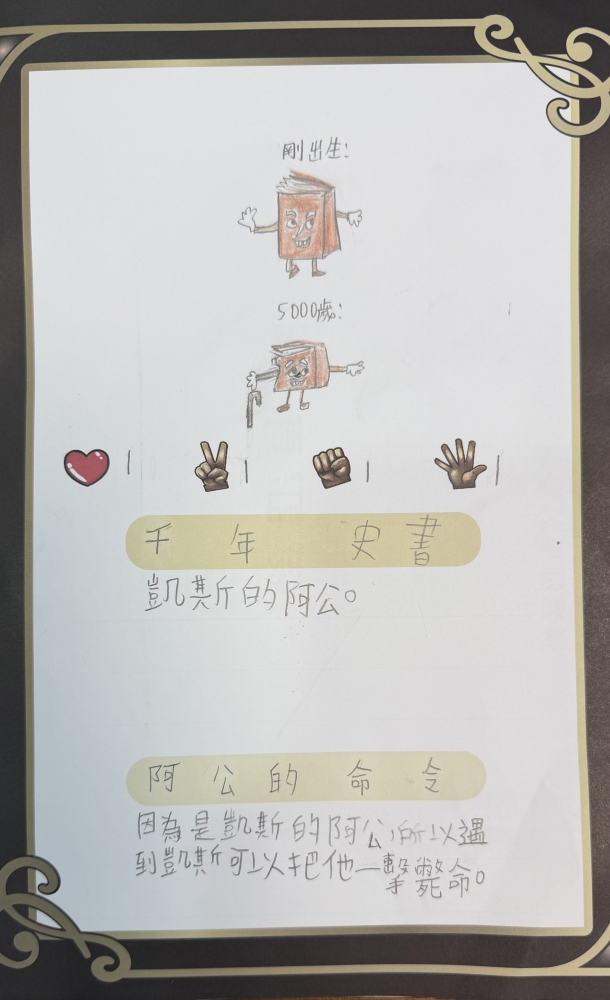 剛出生:
5000歲:
1 1 1 1
千年 史書
凱斯的阿公。
阿公的 命令
因為是凱斯的阿公,所以遇
到凱斯可以把他一擊斃命。